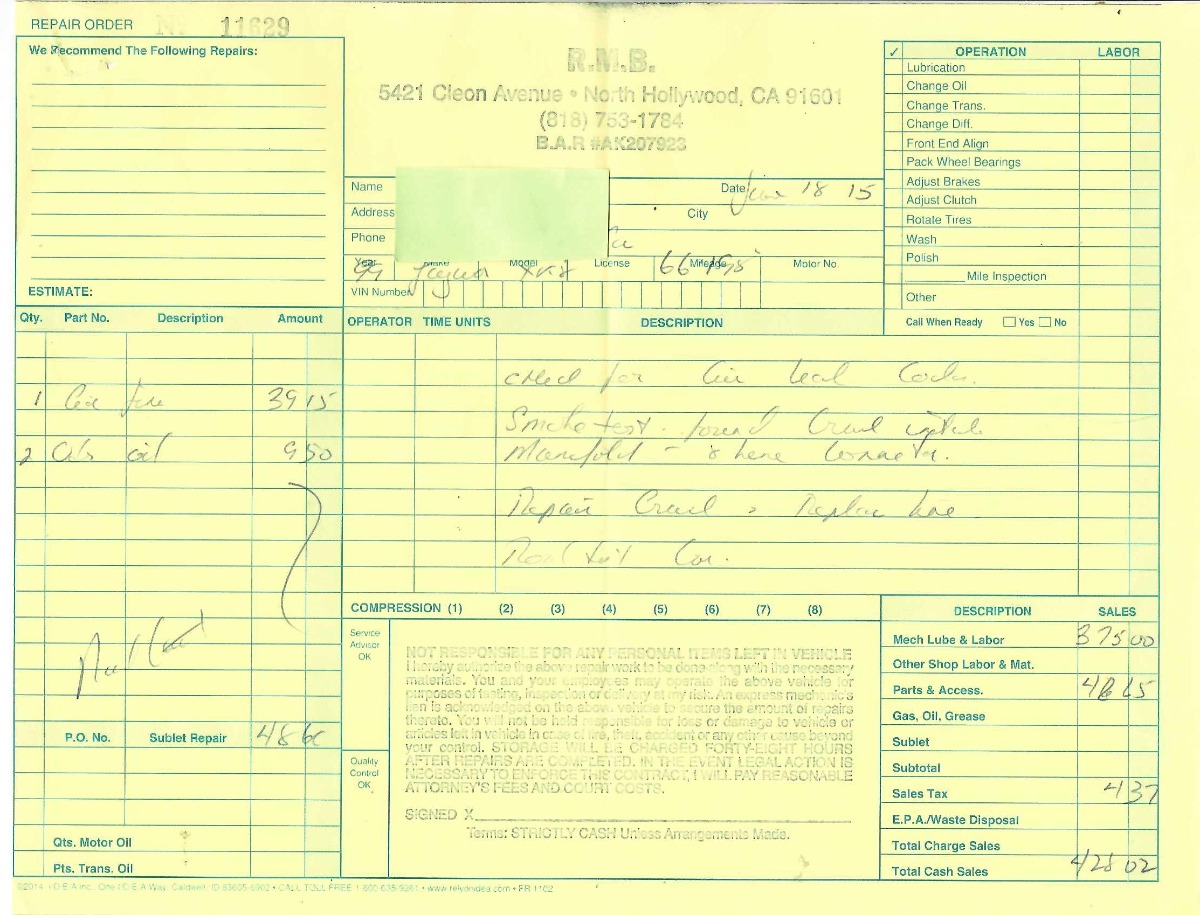 REPAIR ORDER No 11629
We Recommend The Following Repairs:
ESTIMATE:
R.M.B.
5421 Cleon Avenue • North Hollywood, CA 91601
(818) 753-1784
B.A.R #AK207923
Name
Date June 18 15
Address
City
Phone
Year Make Model License Mileage Motor No.
99 Jaguar XK8
VIN Number
✓ OPERATION LABOR
Lubrication
Change Oil
Change Trans.
Change Diff.
Front End Align
Pack Wheel Bearings
Adjust Brakes
Adjust Clutch
Rotate Tires
Wash
Polish
Mile Inspection
Other
Call When Ready Yes No
Qty. Part No. Description Amount
1 39 15
2 oil 9 50
P.O. No. Sublet Repair 48 6
Qts. Motor Oil
Pts. Trans. Oil
OPERATOR TIME UNITS DESCRIPTION
for leak Code.
Smoke test. found Crack intake
Manifold -
Repair Crack Replace
Road test Car.
COMPRESSION (1) (2) (3) (4) (5) (6) (7) (8)
Service
Advisor
OK
Quality
Control
OK
NOT RESPONSIBLE FOR ANY PERSONAL ITEMS LEFT IN VEHICLE
I hereby authorize the above repair work to be done along with the necessary
materials. You and your employees may operate the above vehicle for
purposes of testing, inspection or delivery at my risk. An express mechanic's
lien is acknowledged on the above vehicle to secure the amount of repairs
thereto. You will not be held responsible for loss or damage to vehicle or
articles left in vehicle in case of fire, theft, accident or any other cause beyond
your control. STORAGE WILL BE CHARGED FORTY-EIGHT HOURS
AFTER REPAIRS ARE COMPLETED. IN THE EVENT LEGAL ACTION IS
NECESSARY TO ENFORCE THIS CONTRACT, I WILL PAY REASONABLE
ATTORNEY'S FEES AND COURT COSTS.
SIGNED X
Terms: STRICTLY CASH Unless Arrangements Made.
DESCRIPTION SALES
Mech Lube & Labor 375 00
Other Shop Labor & Mat.
Parts & Access. 48 65
Gas, Oil, Grease
Sublet
Subtotal
Sales Tax 4 37
E.P.A./Waste Disposal
Total Charge Sales
Total Cash Sales 428 02
©2014 I•D•E•A Inc. One I•D•E•A Way, Caldwell, ID 83605-6902 • CALL TOLL FREE 1-800-635-9261 • www.relyonidea.com • FR 1102